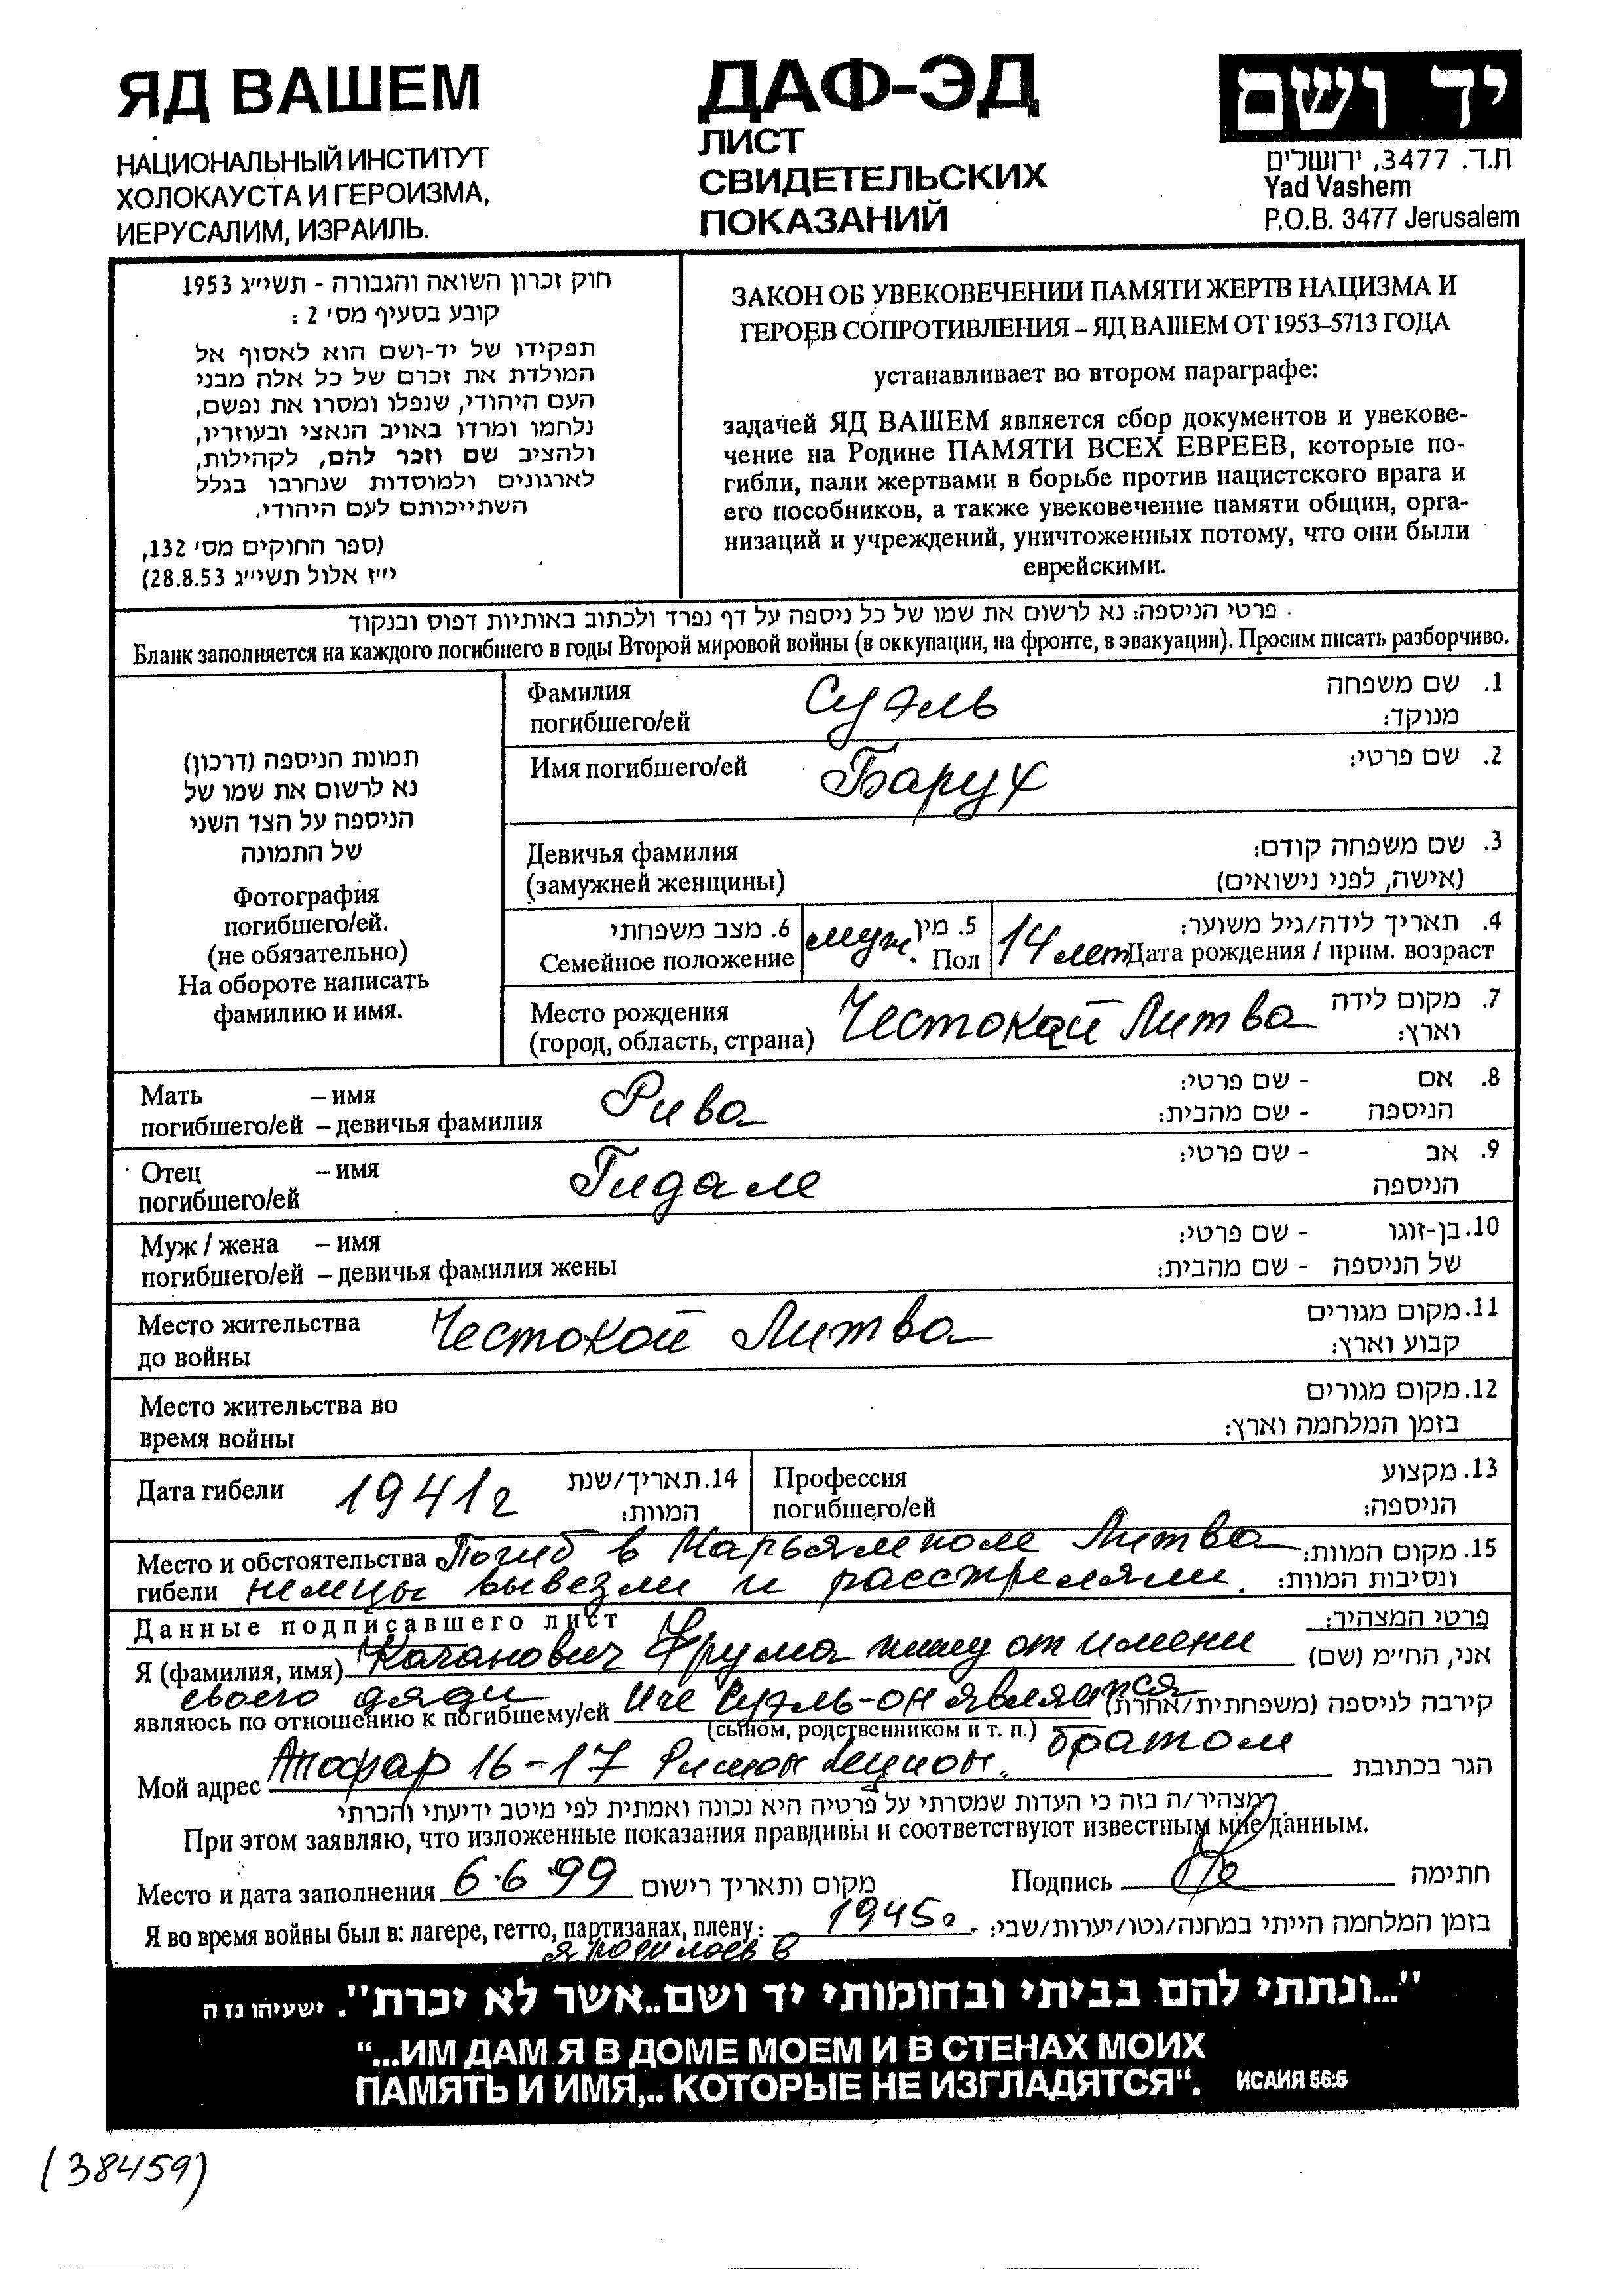 ЯД ВАШЕМ
НАЦИОНАЛЬНЫЙ ИНСТИТУТ
ХОЛОКАУСТА И ГЕРОИЗМА,
ИЕРУСАЛИМ, ИЗРАИЛЬ.
ДАФ-ЭД
ЛИСТ
СВИДЕТЕЛЬСКИХ
ПОКАЗАНИЙ
יד ושם
ת.ד. 3477, ירושלים
Yad Vashem
P.O.B. 3477 Jerusalem
חוק זכרון השואה והגבורה - תשי״ג 1953
קובע בסעיף מס׳ 2 :
תפקידו של יד-ושם הוא לאסוף אל
המולדת את זכרם של כל אלה מבני
העם היהודי, שנפלו ומסרו את נפשם,
נלחמו ומרדו באויב הנאצי ובעוזריו,
ולהציב שם וזכר להם, לקהילות,
לארגונים ולמוסדות שנחרבו בגלל
השתייכותם לעם היהודי.
(ספר החוקים מס׳ 132,
י״ז אלול תשי״ג 28.8.53)
ЗАКОН ОБ УВЕКОВЕЧЕНИИ ПАМЯТИ ЖЕРТВ НАЦИЗМА И
ГЕРОЕВ СОПРОТИВЛЕНИЯ – ЯД ВАШЕМ ОТ 1953–5713 ГОДА
устанавливает во втором параграфе:
задачей ЯД ВАШЕМ является сбор документов и увекове-
чение на Родине ПАМЯТИ ВСЕХ ЕВРЕЕВ, которые по-
гибли, пали жертвами в борьбе против нацистского врага и
его пособников, а также увековечение памяти общин, орга-
низаций и учреждений, уничтоженных потому, что они были
еврейскими.
פרטי הניספה: נא לרשום את שמו של כל ניספה על דף נפרד ולכתוב באותיות דפוס ובנקוד
Бланк заполняется на каждого погибшего в годы Второй мировой войны (в оккупации, на фронте, в эвакуации). Просим писать разборчиво.
תמונת הניספה (דרכון)
נא לרשום את שמו של
הניספה על הצד השני
של התמונה
Фотография
погибшего/ей.
(не обязательно)
На обороте написать
фамилию и имя.
Фамилия Суэль 1. שם משפחה
погибшего/ей מנוקד:
Имя погибшего/ей Барух 2. שם פרטי:
Девичья фамилия 3. שם משפחה קודם:
(замужней женщины) (אישה, לפני נישואים)
6. מצב משפחתי 5. מין 4. תאריך לידה/גיל משוער:
Семейное положение муж. Пол 14 лет Дата рождения / прим. возраст
Место рождения Честокай Литва 7. מקום לידה
(город, область, страна) וארץ:
Мать – имя Рива 8. אם - שם פרטי:
погибшего/ей – девичья фамилия הניספה - שם מהבית:
Отец – имя Гидале 9. אב - שם פרטי:
погибшего/ей הניספה
Муж / жена – имя 10. בן-זוגו - שם פרטי:
погибшего/ей – девичья фамилия жены של הניספה - שם מהבית:
Место жительства Честокой Литва 11. מקום מגורים
до войны קבוע וארץ:
Место жительства во 12. מקום מגורים
время войны בזמן המלחמה וארץ:
Дата гибели 1941г 14. תאריך/שנת המוות: Профессия 13. מקצוע
погибшего/ей הניספה:
Место и обстоятельства Погиб в Марьямполе Литва 15. מקום המוות:
гибели немцы вывезли и расстреляли. ונסיבות המוות:
Данные подписавшего лист פרטי המצהיר:
Я (фамилия, имя) Каганович Фрума пишу от имени אני, החי״מ (שם)
своего дяди
являюсь по отношению к погибшему/ей Иче Суэль - он является קירבה לניספה (משפחתית/אחרת)
(сыном, родственником и т. п.) братом
Мой адрес 16-17 Ришон Лецион. הגר בכתובת
מצהיר/ה בזה כי העדות שמסרתי על פרטיה היא נכונה ואמתית לפי מיטב ידיעתי והכרתי.
При этом заявляю, что изложенные показания правдивы и соответствуют известным мне данным.
Место и дата заполнения 6.6.99 מקום ותאריך רישום Подпись חתימה
Я во время войны был в: лагере, гетто, партизанах, плену: 1945г. בזמן המלחמה הייתי במחנה/גטו/יערות/שבי:
я родилась в
״...ונתתי להם בביתי ובחומותי יד ושם..אשר לא יכרת״. ישעיהו נז ה
“...ИМ ДАМ Я В ДОМЕ МОЕМ И В СТЕНАХ МОИХ
ПАМЯТЬ И ИМЯ,.. КОТОРЫЕ НЕ ИЗГЛАДЯТСЯ“. ИСАИЯ 56:5
(38459)